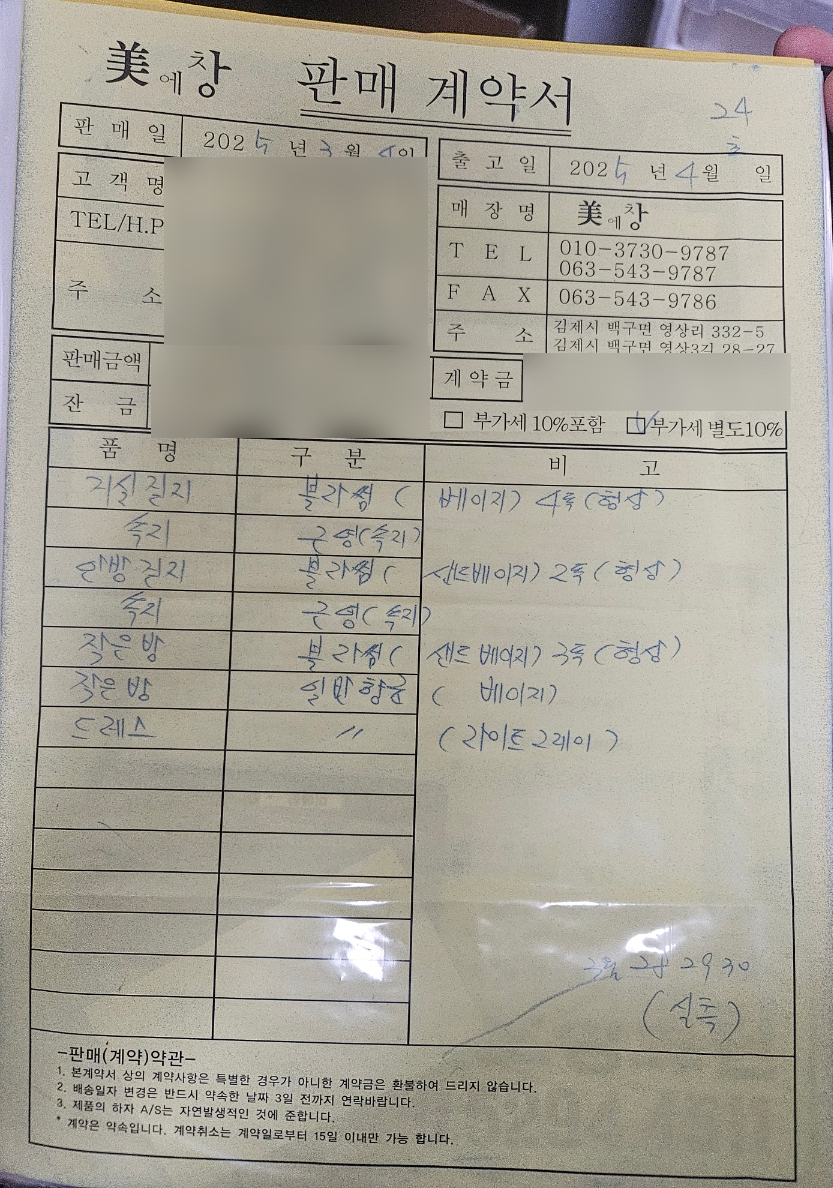 美에창 판매 계약서
24
판 매 일 2025년 3월 4일
초
출 고 일 2025년 4월 일
고 객 명
TEL/H.P
주 소
매 장 명 美에창
T E L 010-3730-9787
063-543-9787
F A X 063-543-9786
주 소 김제시 백구면 영상리 332-5
김제시 백구면 영상3길 28-27
판매금액
계 약 금
잔 금
부가세 10%포함 부가세 별도10%
품 명 구 분 비 고
거실 겉지 블라썸 ( 베이지) 4폭 (형상)
속지 근영(속지)
안방 겉지 블라썸 ( 샌드베이지) 2폭 (형상)
속지 근영(속지)
작은방 블라썸 ( 샌드베이지) 3폭 (형상)
작은방 일반암막 ( 베이지)
드레스 〃 (라이트그레이)
3월 28 29 30
(실측)
-판매(계약)약관-
1. 본계약서 상의 계약사항은 특별한 경우가 아니한 계약금은 환불하여 드리지 않습니다.
2. 배송일자 변경은 반드시 약속한 날짜 3일 전까지 연락바랍니다.
3. 제품의 하자 A/S는 자연발생적인 것에 준합니다.
* 계약은 약속입니다. 계약취소는 계약일로부터 15일 이내만 가능 합니다.